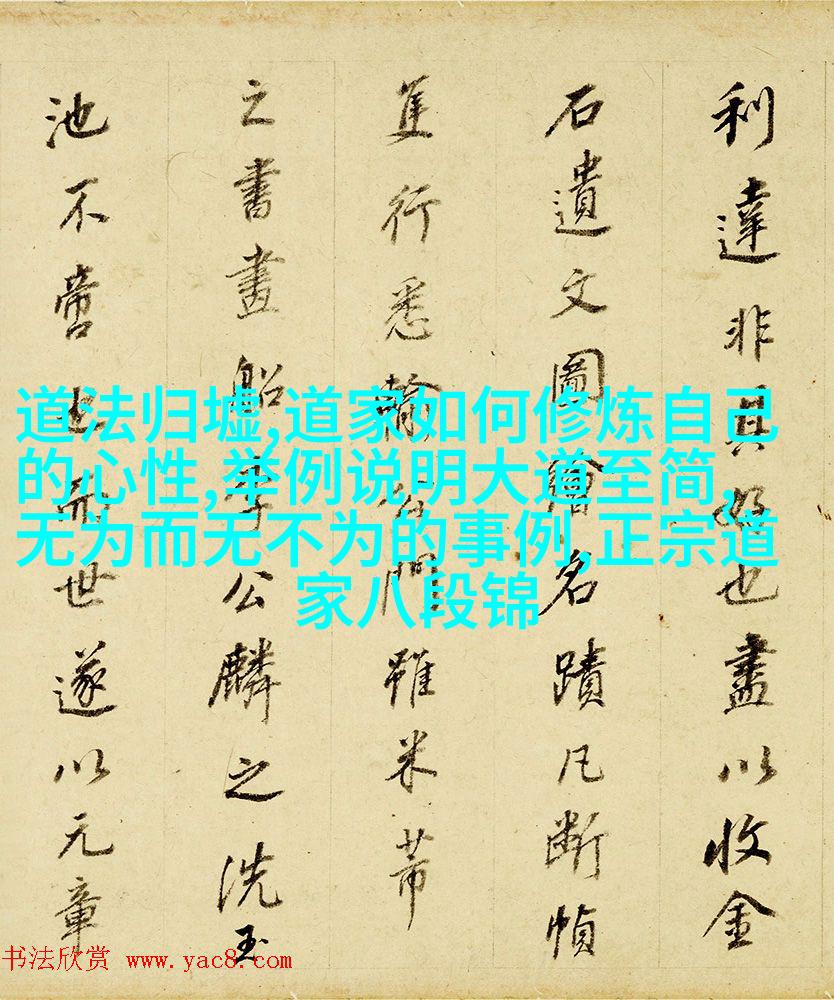 利達非其好也盡以收金
石遺文圖繪名蹟凡斷幀
隻行悉輸公門雖米芾
之書畫船李公麟之洗玉
池不啻也而世遂以元章
道法归墟,道家如何修炼自己
的心性,举例说明大道至简,
无为而无不为的事例,正宗道
家八段锦
书法欣赏 www.yac8.com